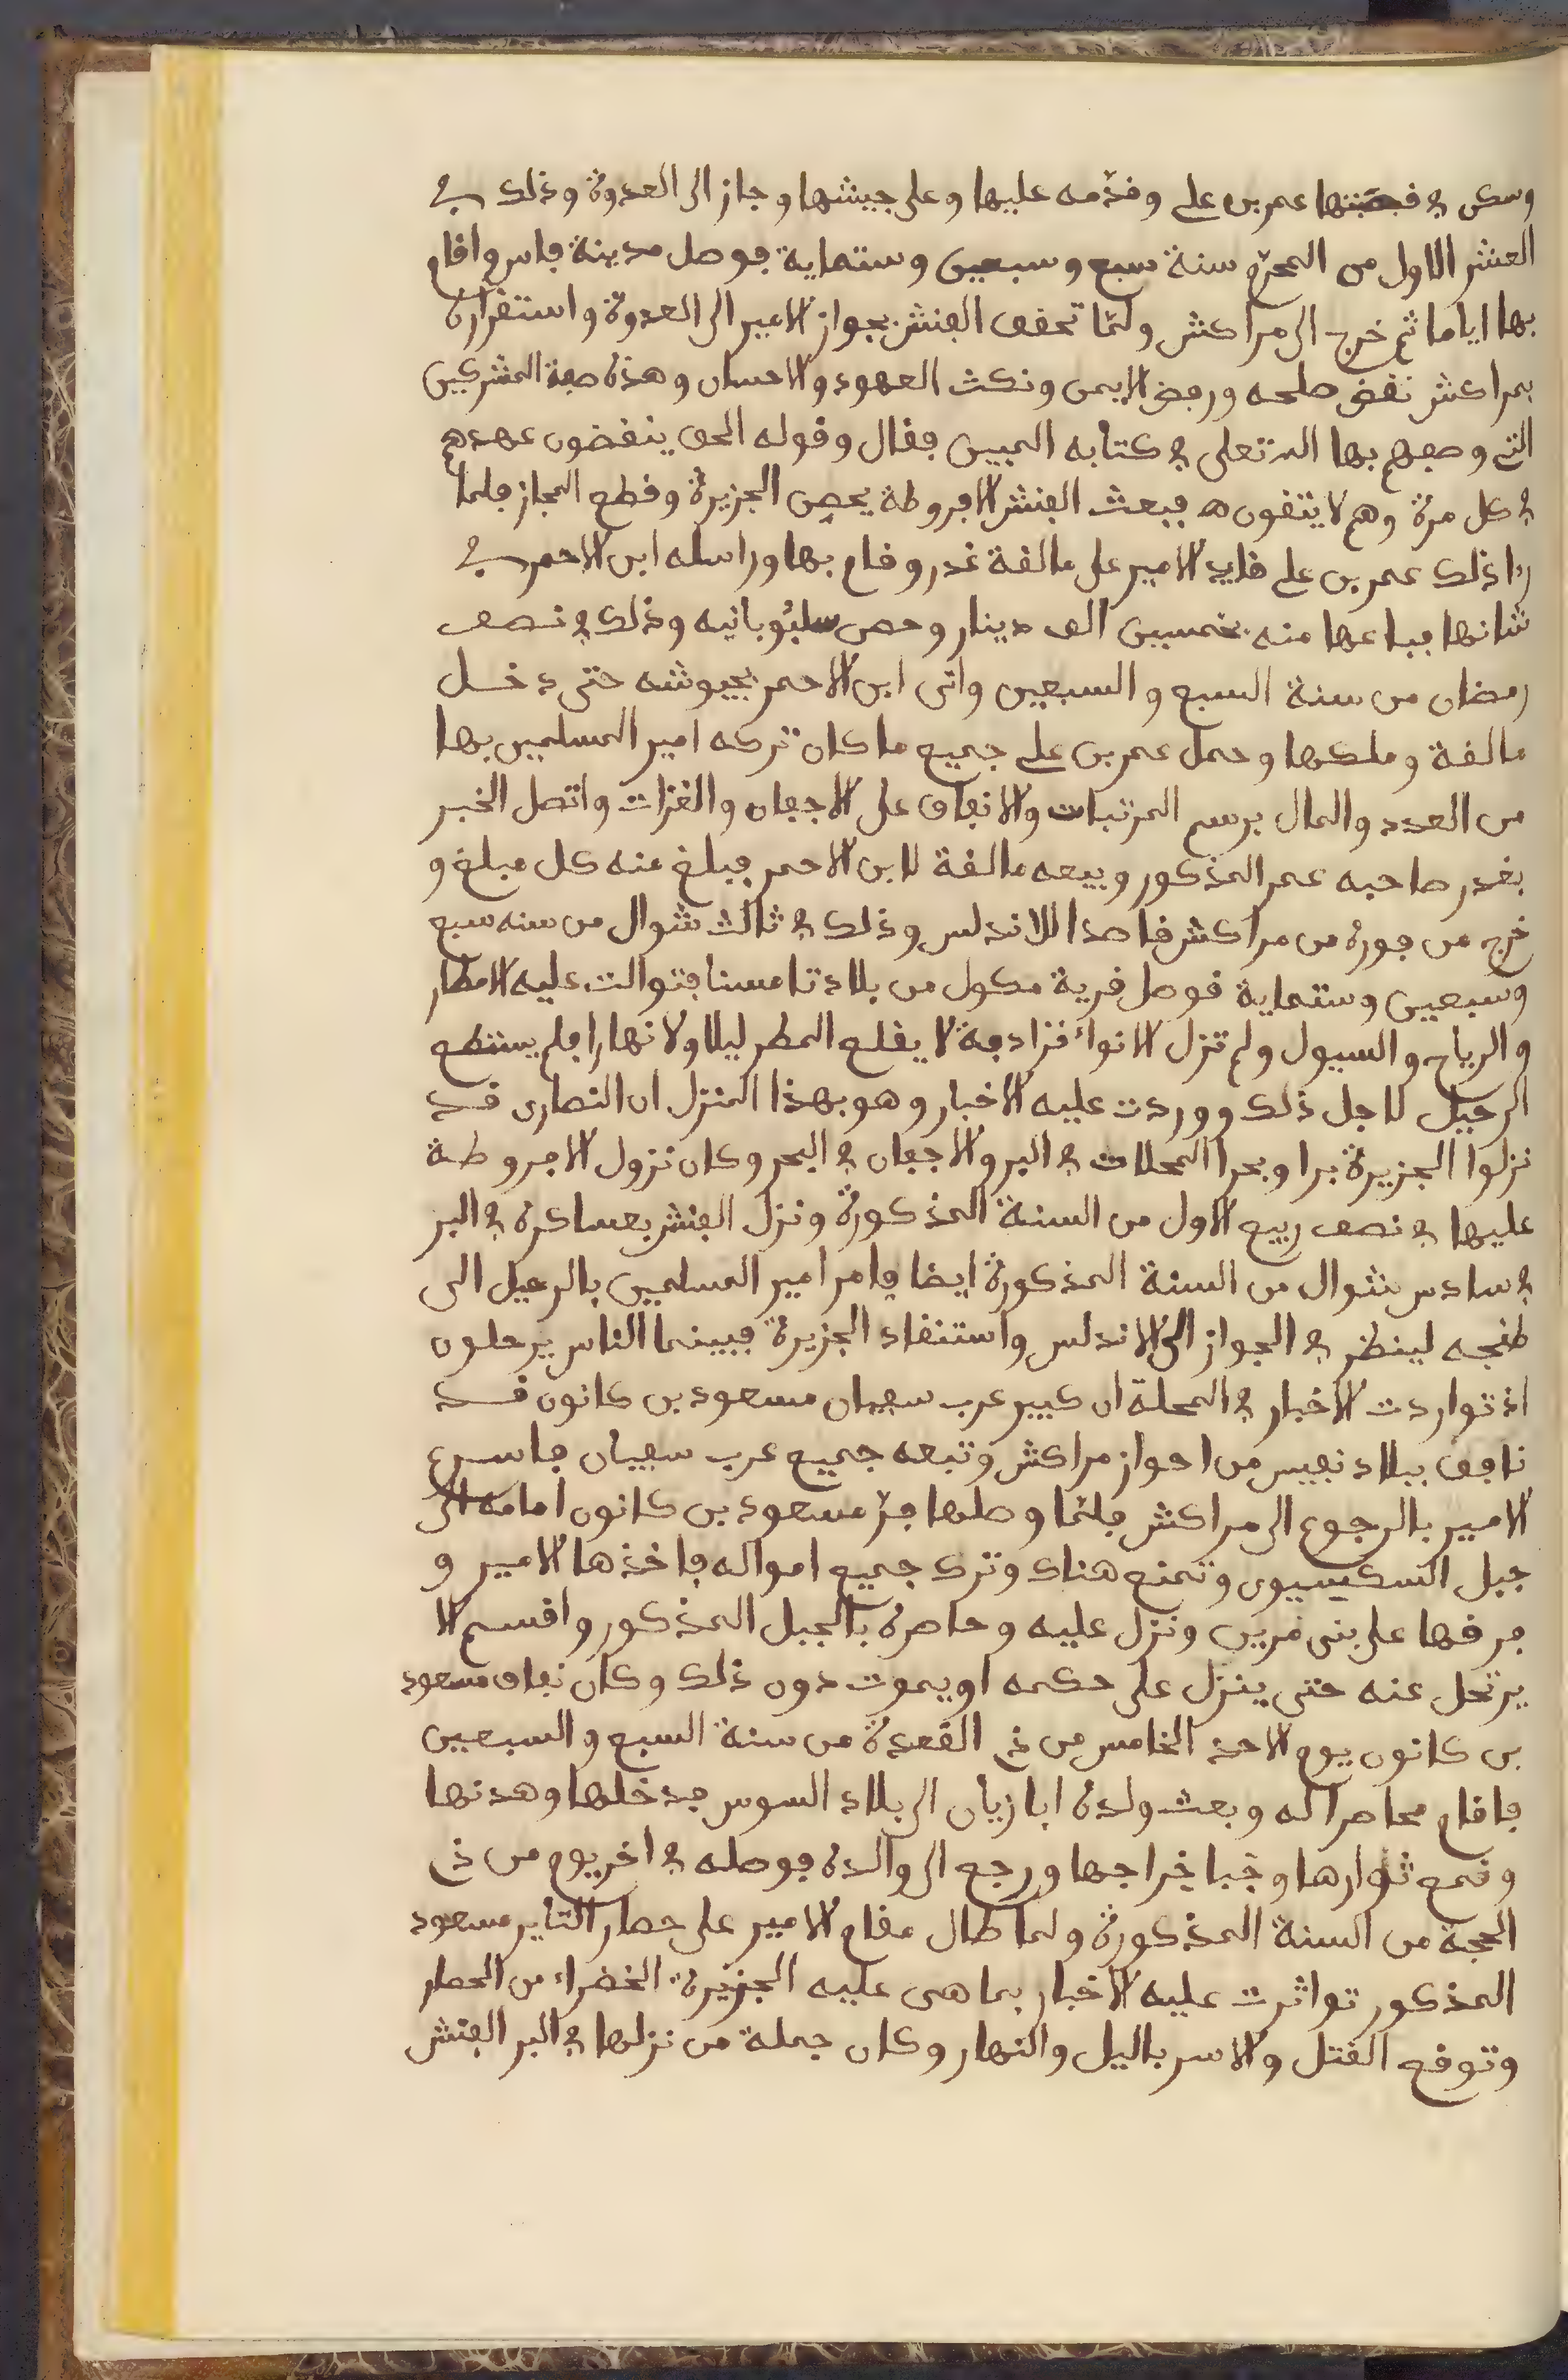 وسكن في قصبتها عمر بن علي وقدّمه عليها وعلى جيشها وجاز الى العدوة وذلك في
العشر الاول من المحرّم سنة سبع وسبعين وستماية فوصل مدينة فاس واقام
بها اياما ثم خرج الى مراكش ولمّا تحقق الفنش بجواز الامير الى العدوة واستقراره
بمراكش نقض صلحه ورفض الايمن ونكث العهود والاحسان وهذه صفة المشركين
التي وصفهم بها الله تعلى في كتابه المبين فقال وقوله الحق ينقضون عهدهم
في كل مرة وهم لا يتقون فبعث الفنش الافروطة يحص الجزيرة وقطع المجاز فلما
را ذلك عمر بن علي قايد الامير على مالقة غدر وقام بها وراسله ابن الاحمر في
شانها فباعها منه بخمسين الف دينار وحصن سلبوبانيه وذلك في نصف
رمضان من سنة السبع والسبعين واتى ابن الاحمر بجيوشه حتى دخل
مالقة وملكها وحمل عمر بن علي جميع ما كان تركه امير المسلمين بها
من العدد والمال برسم المرتبات والانفاق على الاجفان والغزات واتصل الخبر
بغدر صاحبه عمر المذكور وبيعه مالقة لابن الاحمر فبلغ منه كل مبلغ و
خرج من فوره من مراكش قاصدا للاندلس وذلك في ثالث شوال من سنه سبع
وسبعين وستماية فوصل قرية مكول من بلاد تامسنا فتوالت عليه الامطار
والرياح والسيول ولم تزل الانواء تزادفة لا يقلع المطر ليلا ولا نهارا فلم يستطع
الرحيل لاجل ذلك ووردت عليه الاخبار وهو بهذا المنزل ان النصارى قد
نزلوا الجزيرة برا وبحرا المحلات في البر والاجفان في البحر وكان نزول الافروطة
عليها في نصف ربيع الاول من السنة المذكورة ونزل الفنش بعساكره في البر
في سادس شوال من السنة المذكورة ايضا فامر امير المسلمين بالرحيل الى
طنجه لينظر في الجواز الى الاندلس واستنقاذ الجزيرة فبينما الناس يرحلون
اذ تواردت الاخبار في المحلة ان كبير عرب سفيان مسعود بن كانون قد
نافق ببلاد نفيس من احواز مراكش وتبعه جميع عرب سفيان فاسرع
الامير بالرجوع الى مراكش فلمّا وصلها فرّ مسعود بن كانون امامه الى
جبل السكسيوى وتمنع هناك وترك جميع امواله فاخذها الامير و
فرقها على بنى مرين ونزل عليه وحاصره بالجبل المذكور واقسم الا
يرتحل عنه حتى ينزل على حكمه او يموت دون ذلك وكان نفاق مسعود
بن كانون يوم الاحد الخامس من ذي القعدة من سنة السبع والسبعين
فاقام محاصرا له وبعث ولده ابا زيان الى بلاد السوس فدخلها وهدنها
وقمع ثوارها وجبا خراجها ورجع الى والده فوصله في اخر يوم من ذي
الحجة من السنة المذكورة ولما طال مقام الامير على حصار الثاير مسعود
المذكور تواثرت عليه الاخبار بما هى عليه الجزيرة الخضراء من الحصار
وتوقع القتل والاسر باليل والنهار وكان جملة من نزلها في البر الفنش